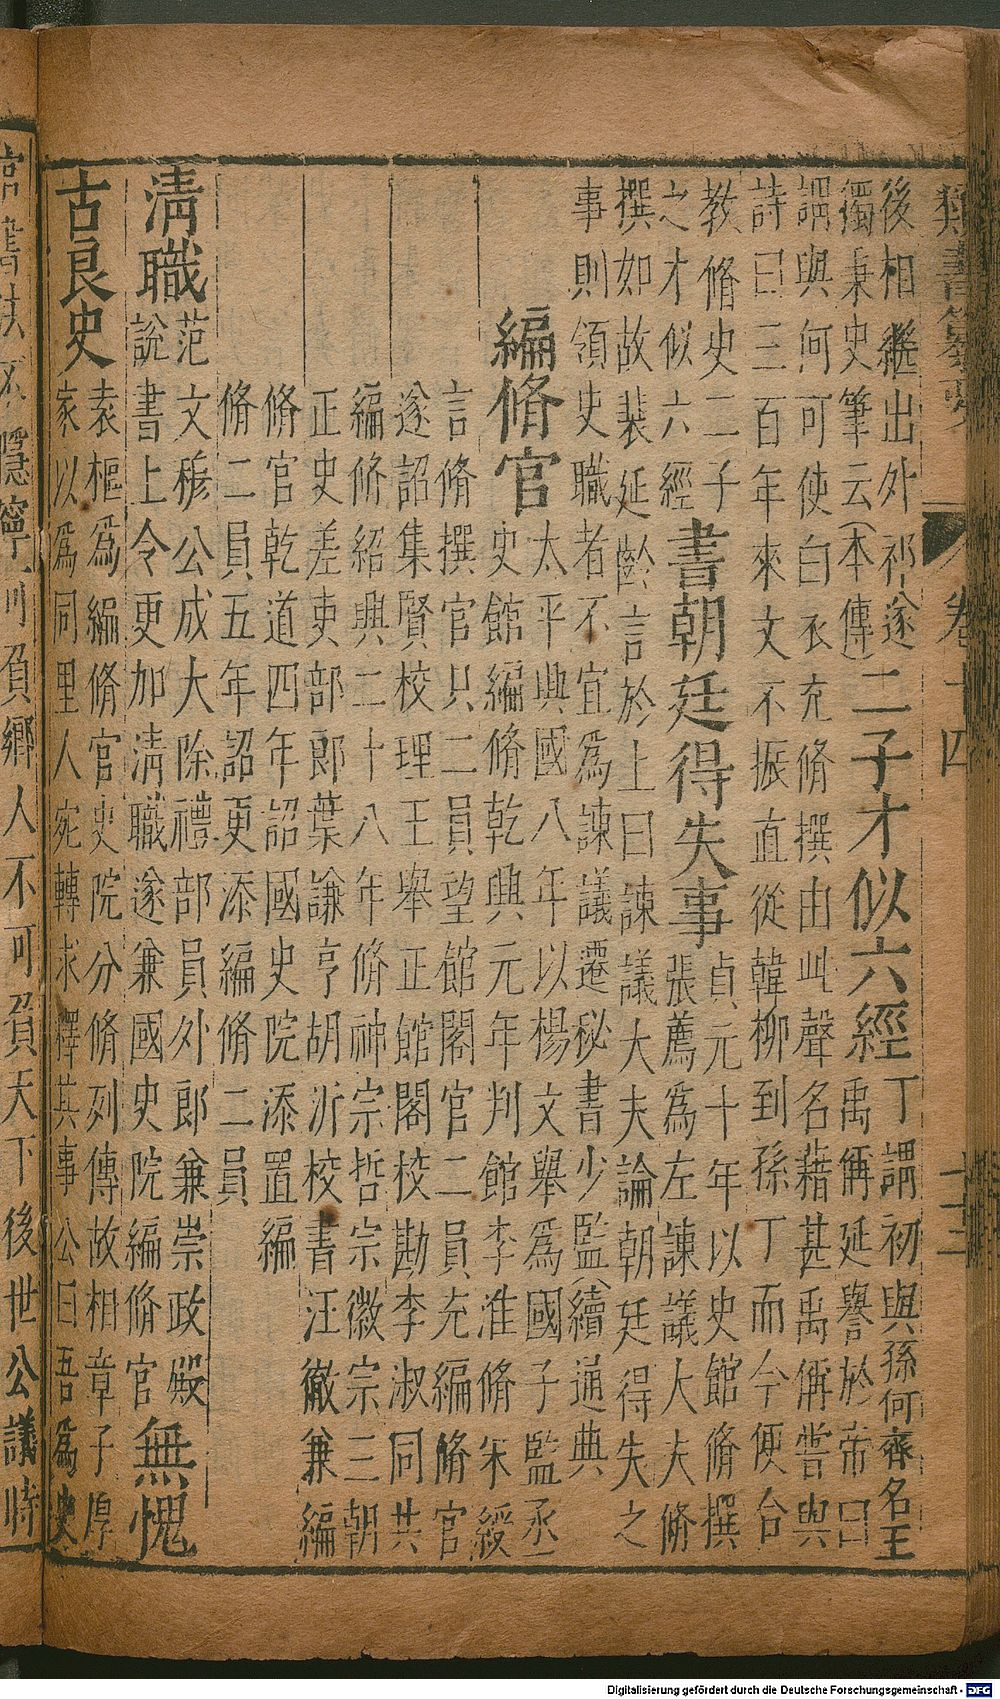 類書纂要 卷十四 十三
後相繼出外祁遂二子才似六經丁謂初與孫何齊名王
獨秉史筆云(本傳)禹偁延譽於帝曰
謂與何可使白衣充脩撰由此聲名藉甚禹偁嘗與
詩曰三百年來文不振直從韓柳到孫丁而今便合
教脩史二子書朝廷得失事貞元十年以史館脩撰
之才似六經張薦為左諫議大夫脩
撰如故裴延齡言於上曰諫議大夫論朝廷得失之
事則領史職者不宜為諫議遷秘書少監(續通典
編脩官太平興國八年以楊文舉為國子監丞
史館編脩乾興元年判館李淮脩宋綬
言脩撰官只二員望館閣官二員充編脩官
遂詔集賢校理王舉正館閣校勘李淑同共
編脩紹興二十八年脩神宗哲宗徽宗三朝
正史差吏部郎葉謙亨胡沂校書汪徹兼編
脩官乾道四年詔國史院添置編
脩二員五年詔更添編脩二員
清職范文穆公成大除禮部員外郎兼崇政殿
說書上令更加清職遂兼國史院編脩官無愧
古良史袁樞為編脩官史院分脩列傳故相章子厚
家以為同里人宛轉求釋其事公曰吾為史
官書法不隱寧可負鄉人不可負天下後世公議時
Digitalisierung gefördert durch die Deutsche Forschungsgemeinschaft - DFG